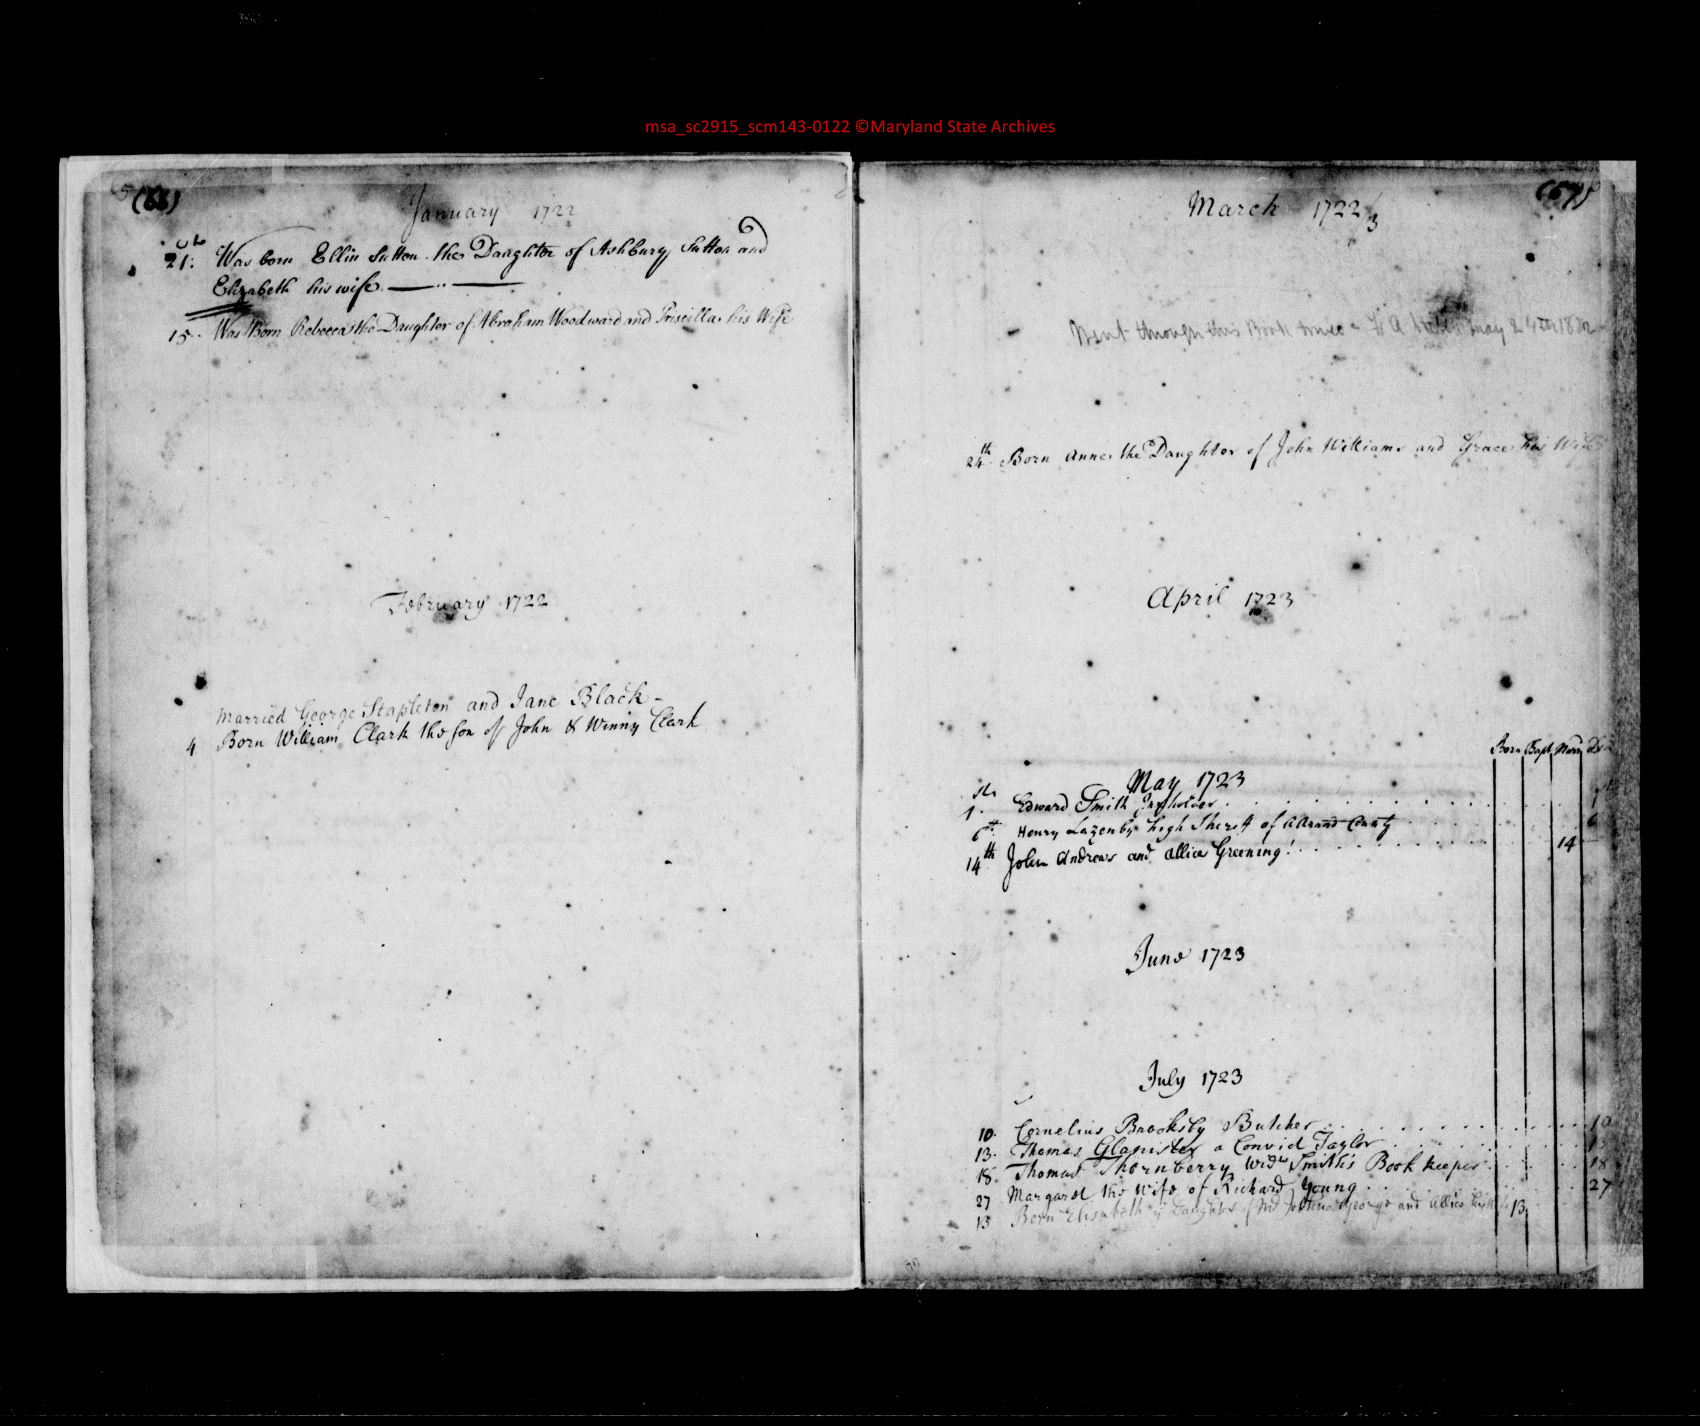 msa_sc2915_scm143-0122 ©Maryland State Archives
(66)
January 1722
21: Was born Ellin Sutton the Daughter of Ashbury Sutton and
Elizabeth his wife
15 Was Born Rebecca the Daughter of Abraham Woodward and Priscilla his Wife
February 1722
Married George Stapleton and Jane Black
4 Born William Clark the son of John & Winny Clark
(67)
March 1722/3
Went through this Book twice May 24
24th Born Anne the Daughter of John Williams and Grace his Wife
April 1723
Born Bapt Marr
May 1723
1 Edward Smith Inholder
6th Henry Lazenby high Sheriff of AArund County 6
14th John Andrews and Allice Greening 14
June 1723
July 1723
10 Cornelius Brooksby Butcher 10
13 Thomas Glanister a Convict Taylor 13
18 Thomas Thornberry Widw Smith's Book keeper 18
27 Margaret the Wife of Richard Young 27
13 Born Elisabeth ye Daughter of Mr Joshua George and Allice 13